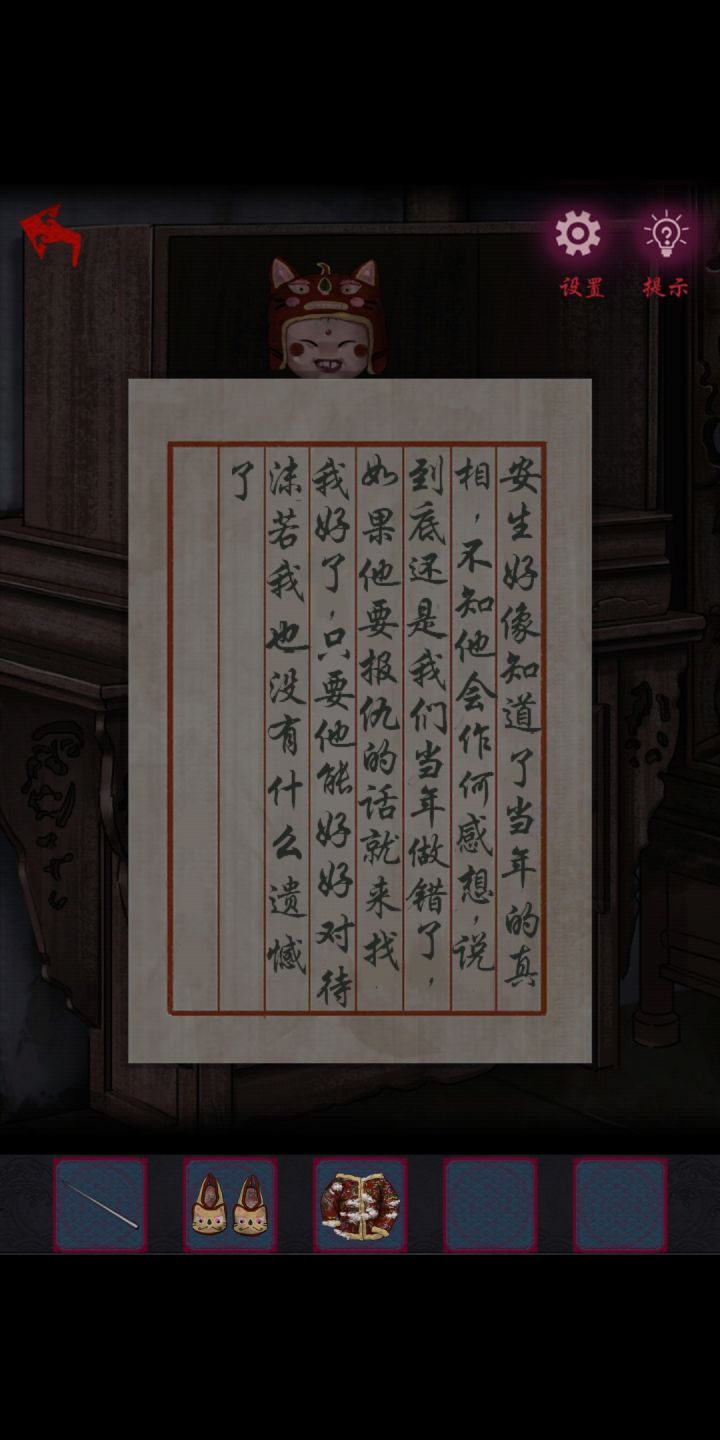 设置
提示
安生好像知道了当年的真
相，不知他会作何感想，说
到底还是我们当年做错了，
如果他要报仇的话就来找
我好了，只要他能好好对待
沫若我也没有什么遗憾
了